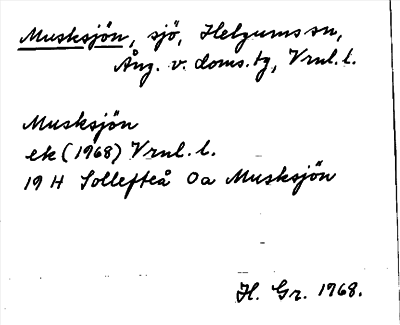 Musksjön, sjö, Helgums sn,
Ång. v. doms. tg, Vrnl. l.
Musksjön
ek (1968) Vrnl. l.
19 H Sollefteå Oa Musksjön
H. Gr. 1968.